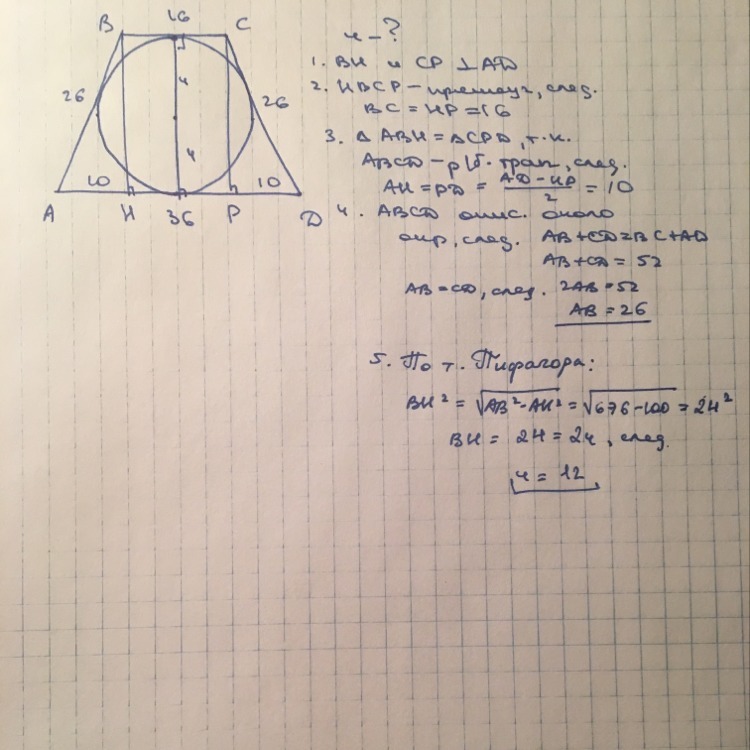 16
B C
26 26
ч
ч
10 10
A H 36 P D
ч – ?
1. BH и CP ⊥ AD
2. HBCP – прямоуг, след.
BC = HP = 16
3. Δ ABH = ΔCPD, т.к.
ABCD – р/б. трап, след.
AH = PD = AD – HP / 2 = 10
4. ABCD опис. около
окр, след. AB + CD = BC + AD
AB + CD = 52
AB = CD, след. 2AB = 52
AB = 26
5. По т. Пифагора:
BH² = √AB² - AH² = √676 - 100 = 24²
BH = 2ч = 24, след.
ч = 12